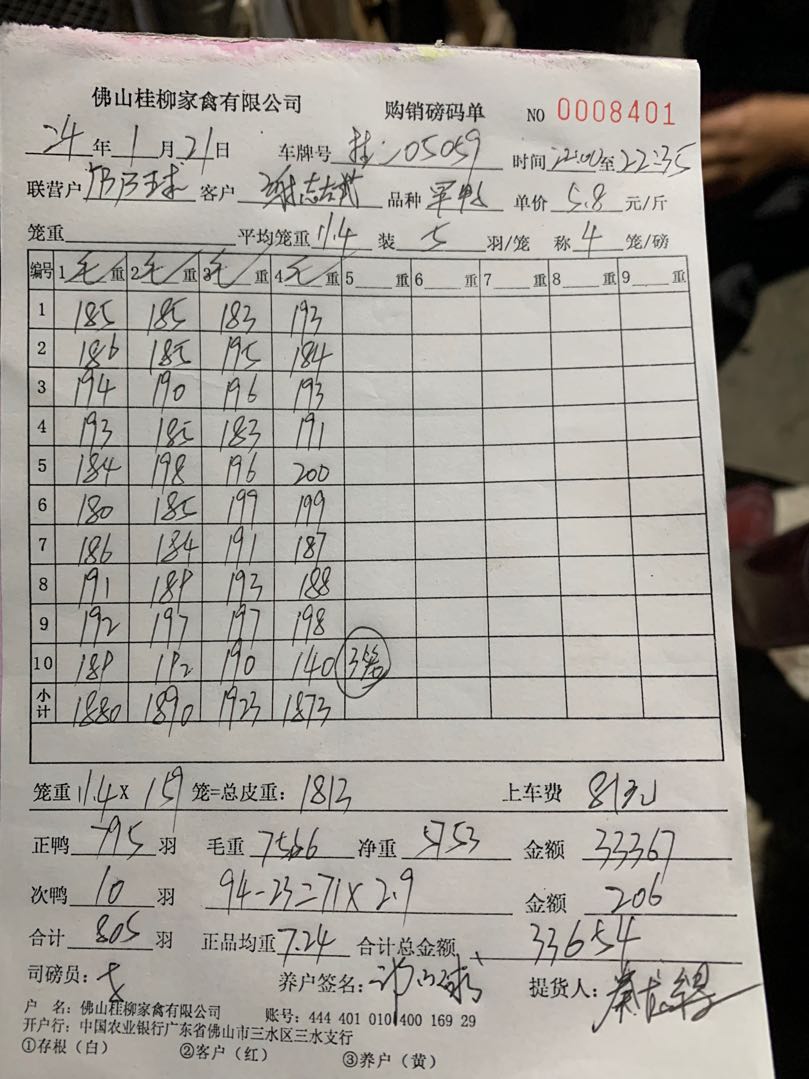 佛山桂柳家禽有限公司 购销磅码单 NO 0008401
24 年 1 月 21 日 车牌号 05059 时间 22:00 至 22:35
联营户 客户 谢志 品种 单价 5.8 元/斤
笼重 平均笼重 11.4 装 5 羽/笼 称 4 笼/磅
编号 1 毛 重 2 毛 重 3 毛 重 4 毛 重 5 重 6 重 7 重 8 重 9 重
1 185 185 183 193
2 186 185 195 184
3 194 190 196 193
4 193 185 183 191
5 184 198 196 200
6 180 185 199 199
7 186 184 191 187
8 191 189 193 188
9 192 197 197 198
10 189 192 190 140 3笼
小计 1880 1890 1923 1873
笼重 11.4 X 159 笼=总皮重: 1813 上车费 81元
正鸭 795 羽 毛重 7566 净重 5753 金额 33367
次鸭 10 羽 94-23=71×2.9 金额 206
合计 805 羽 正品均重 7.24 合计总金额 33654
司磅员: 养户签名: 提货人:
户 名: 佛山桂柳家禽有限公司 账号: 444 401 010 400 169 29
开户行: 中国农业银行广东省佛山市三水区三水支行
①存根（白） ②客户（红） ③养户（黄）